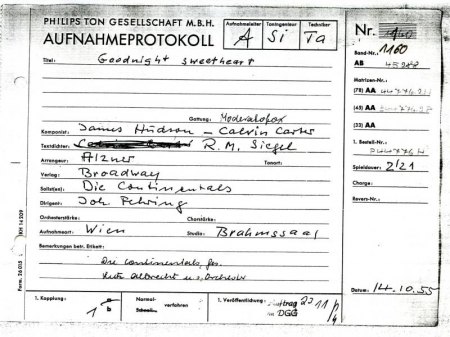 PHILIPS TON GESELLSCHAFT M.B.H.
AUFNAHMEPROTOKOLL
Aufnahmeleiter A
Toningenieur Si
Techniker Ta
Nr.
Band-Nr. 1160
AB
Titel: Goodnight sweetheart
Matrizen-Nr.
(78) AA
(45) AA
(33) AA
Gattung: Moderatofox
Komponist: James Hudson - Calvin Carter
Textdichter: R.M. Siegel
Arrangeur: Alzner
Tonort:
Verlag: Broadway
Solist(en): Die Continentals
Dirigent: Joh. Fehring
Orchesterstärke:
Chorstärke:
Aufnahmeort: Wien
Studio: Brahmssaal
Bemerkungen betr. Etikett:
Die Continentals, Ges.
Orchester
1. Bestell-Nr.
Spieldauer: 2'21
Charge:
Revers-Nr.:
Datum: 14.10.55
1. Kopplung: 1 a b
Normal-
Schnell-
verfahren
1. Veröffentlichung:
Auftrag
DGG
Form. 26 015